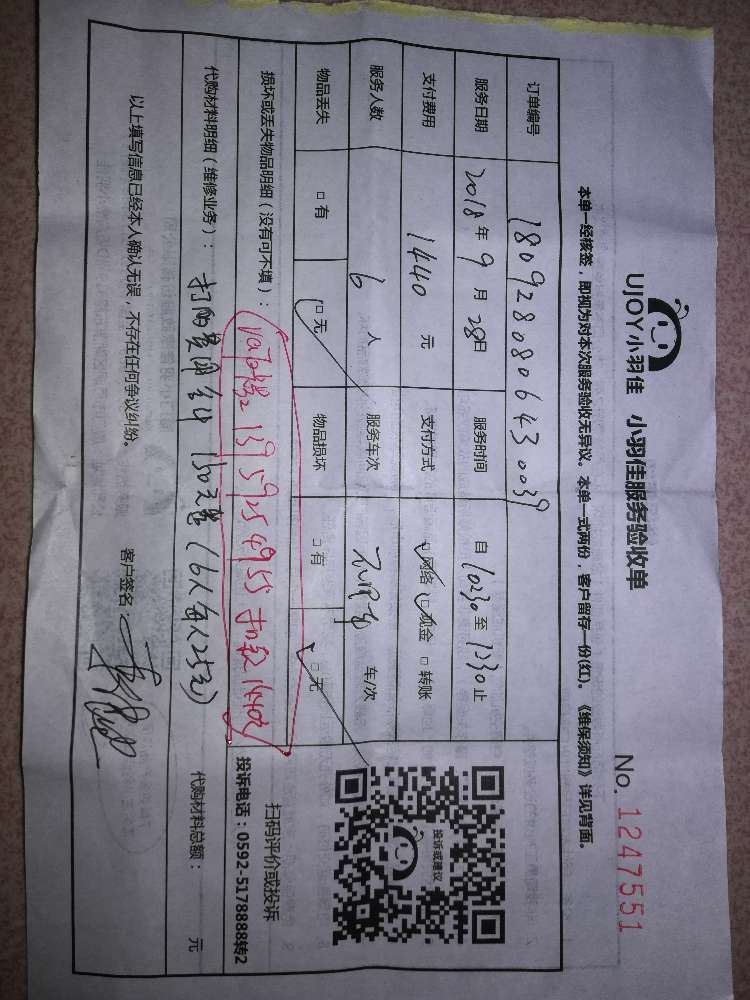 UJOY小羽佳 小羽佳服务验收单
No. 1247551
本单一经核签，即视为对本次服务验收无异议。本单一式两份，客户留存一份(红)。《维保须知》详见背面。
订单编号 1809280806430039
服务日期 2018年9月28日 服务时间 自1030至1330止
支付费用 1440元 支付方式 □网络 □现金 □转账
服务人数 6人 服务车次 车/次
物品丢失 □有 □无 物品损坏 □有 □无
损坏或丢失物品明细（没有可不填）： 13959254955 扣款1440
代购材料明细（维修业务）： 150元整（6人每人25元） 代购材料总额： 元
以上填写信息已经本人确认无误，不存在任何争议纠纷。 客户签名：
投诉或建议
扫码评价或投诉
投诉电话：0592-5178888转2